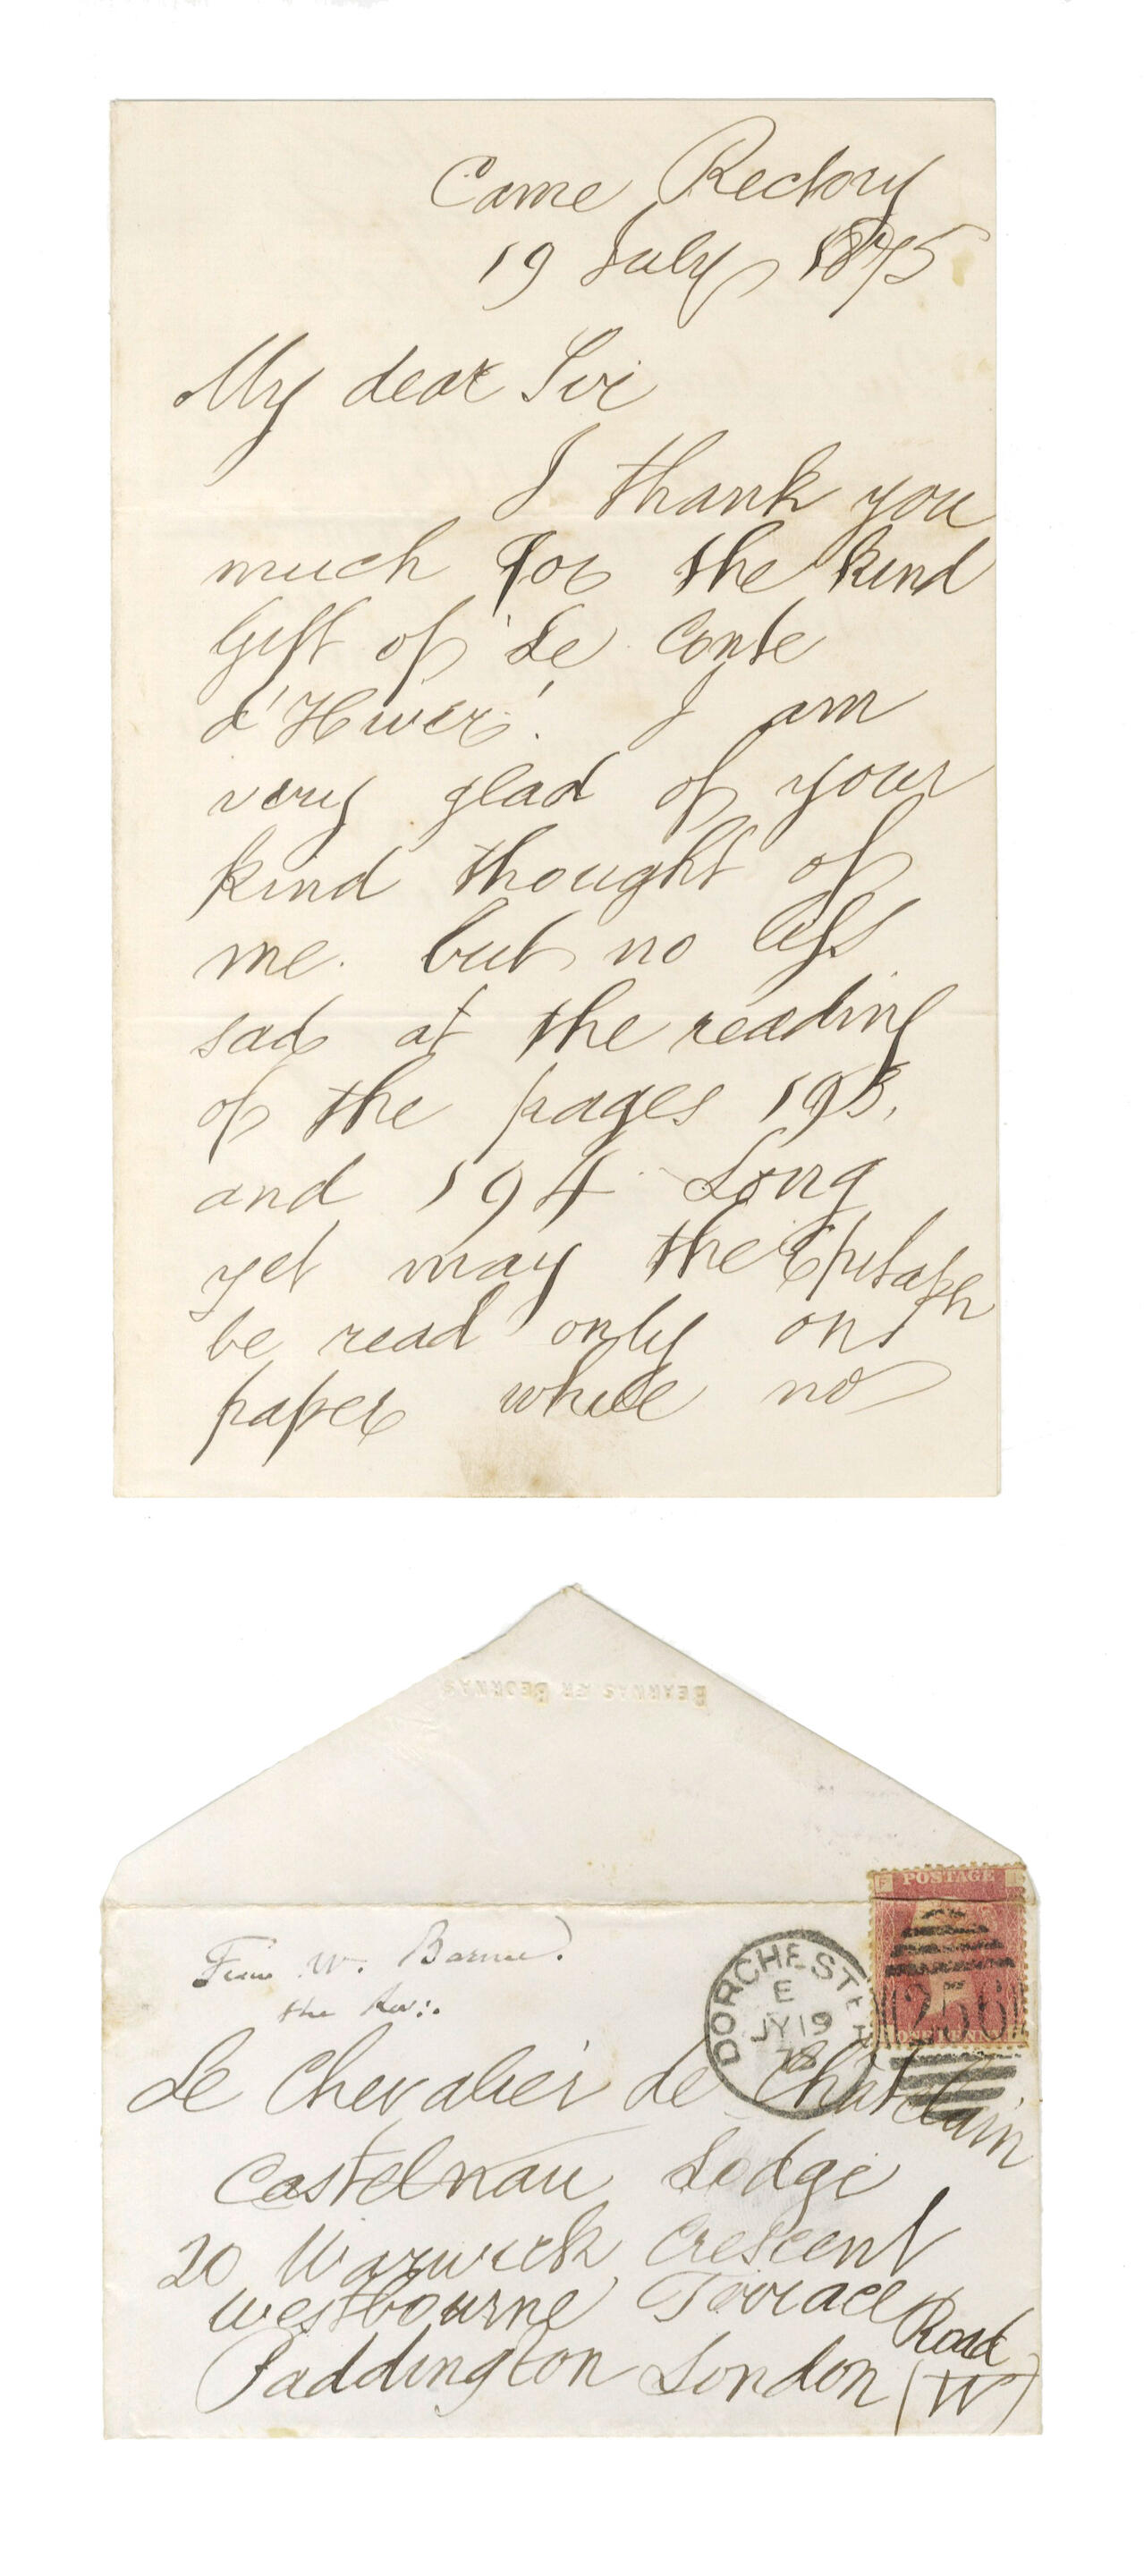 Came Rectory
19 July 1875
My dear Sir
I thank you
much for the kind
gift of 'Le Conte
d'Hiver'. I am
very glad of your
kind thought of
me. but no less
sad at the reading
of the pages 193,
and 194 Long
yet may the Epitaph
be read only on
paper while no
BEARNAS ER BEORNAS
From W. Barnes.
the Rev:.
DORCHESTER
E
JY 19
75
POSTAGE
256
ONE PENNY
Le Chevalier de Chatelain
Castelnau Lodge
20 Warwick Crescent
Westbourne Terrace Road
Paddington London (W)